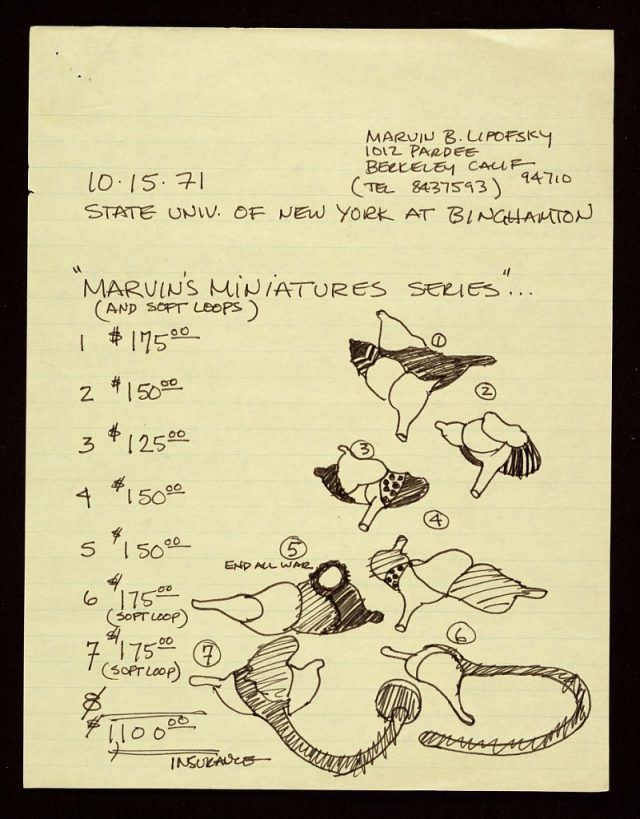 MARVIN B. LIPOFSKY
1012 PARDEE
BERKELEY CALIF
(TEL 8437593) 94710
10·15·71
STATE UNIV. OF NEW YORK AT BINGHAMTON
"MARVIN'S MINIATURES SERIES"...
(AND SOFT LOOPS)
1 $175.00
2 $150.00
3 $125.00
4 $150.00
5 $150.00
6 $175.00
(SOFT LOOP)
7 $175.00
(SOFT LOOP)
8
$1,100.00
INSURANCE
1
2
3
4
5
END ALL WAR
6
7